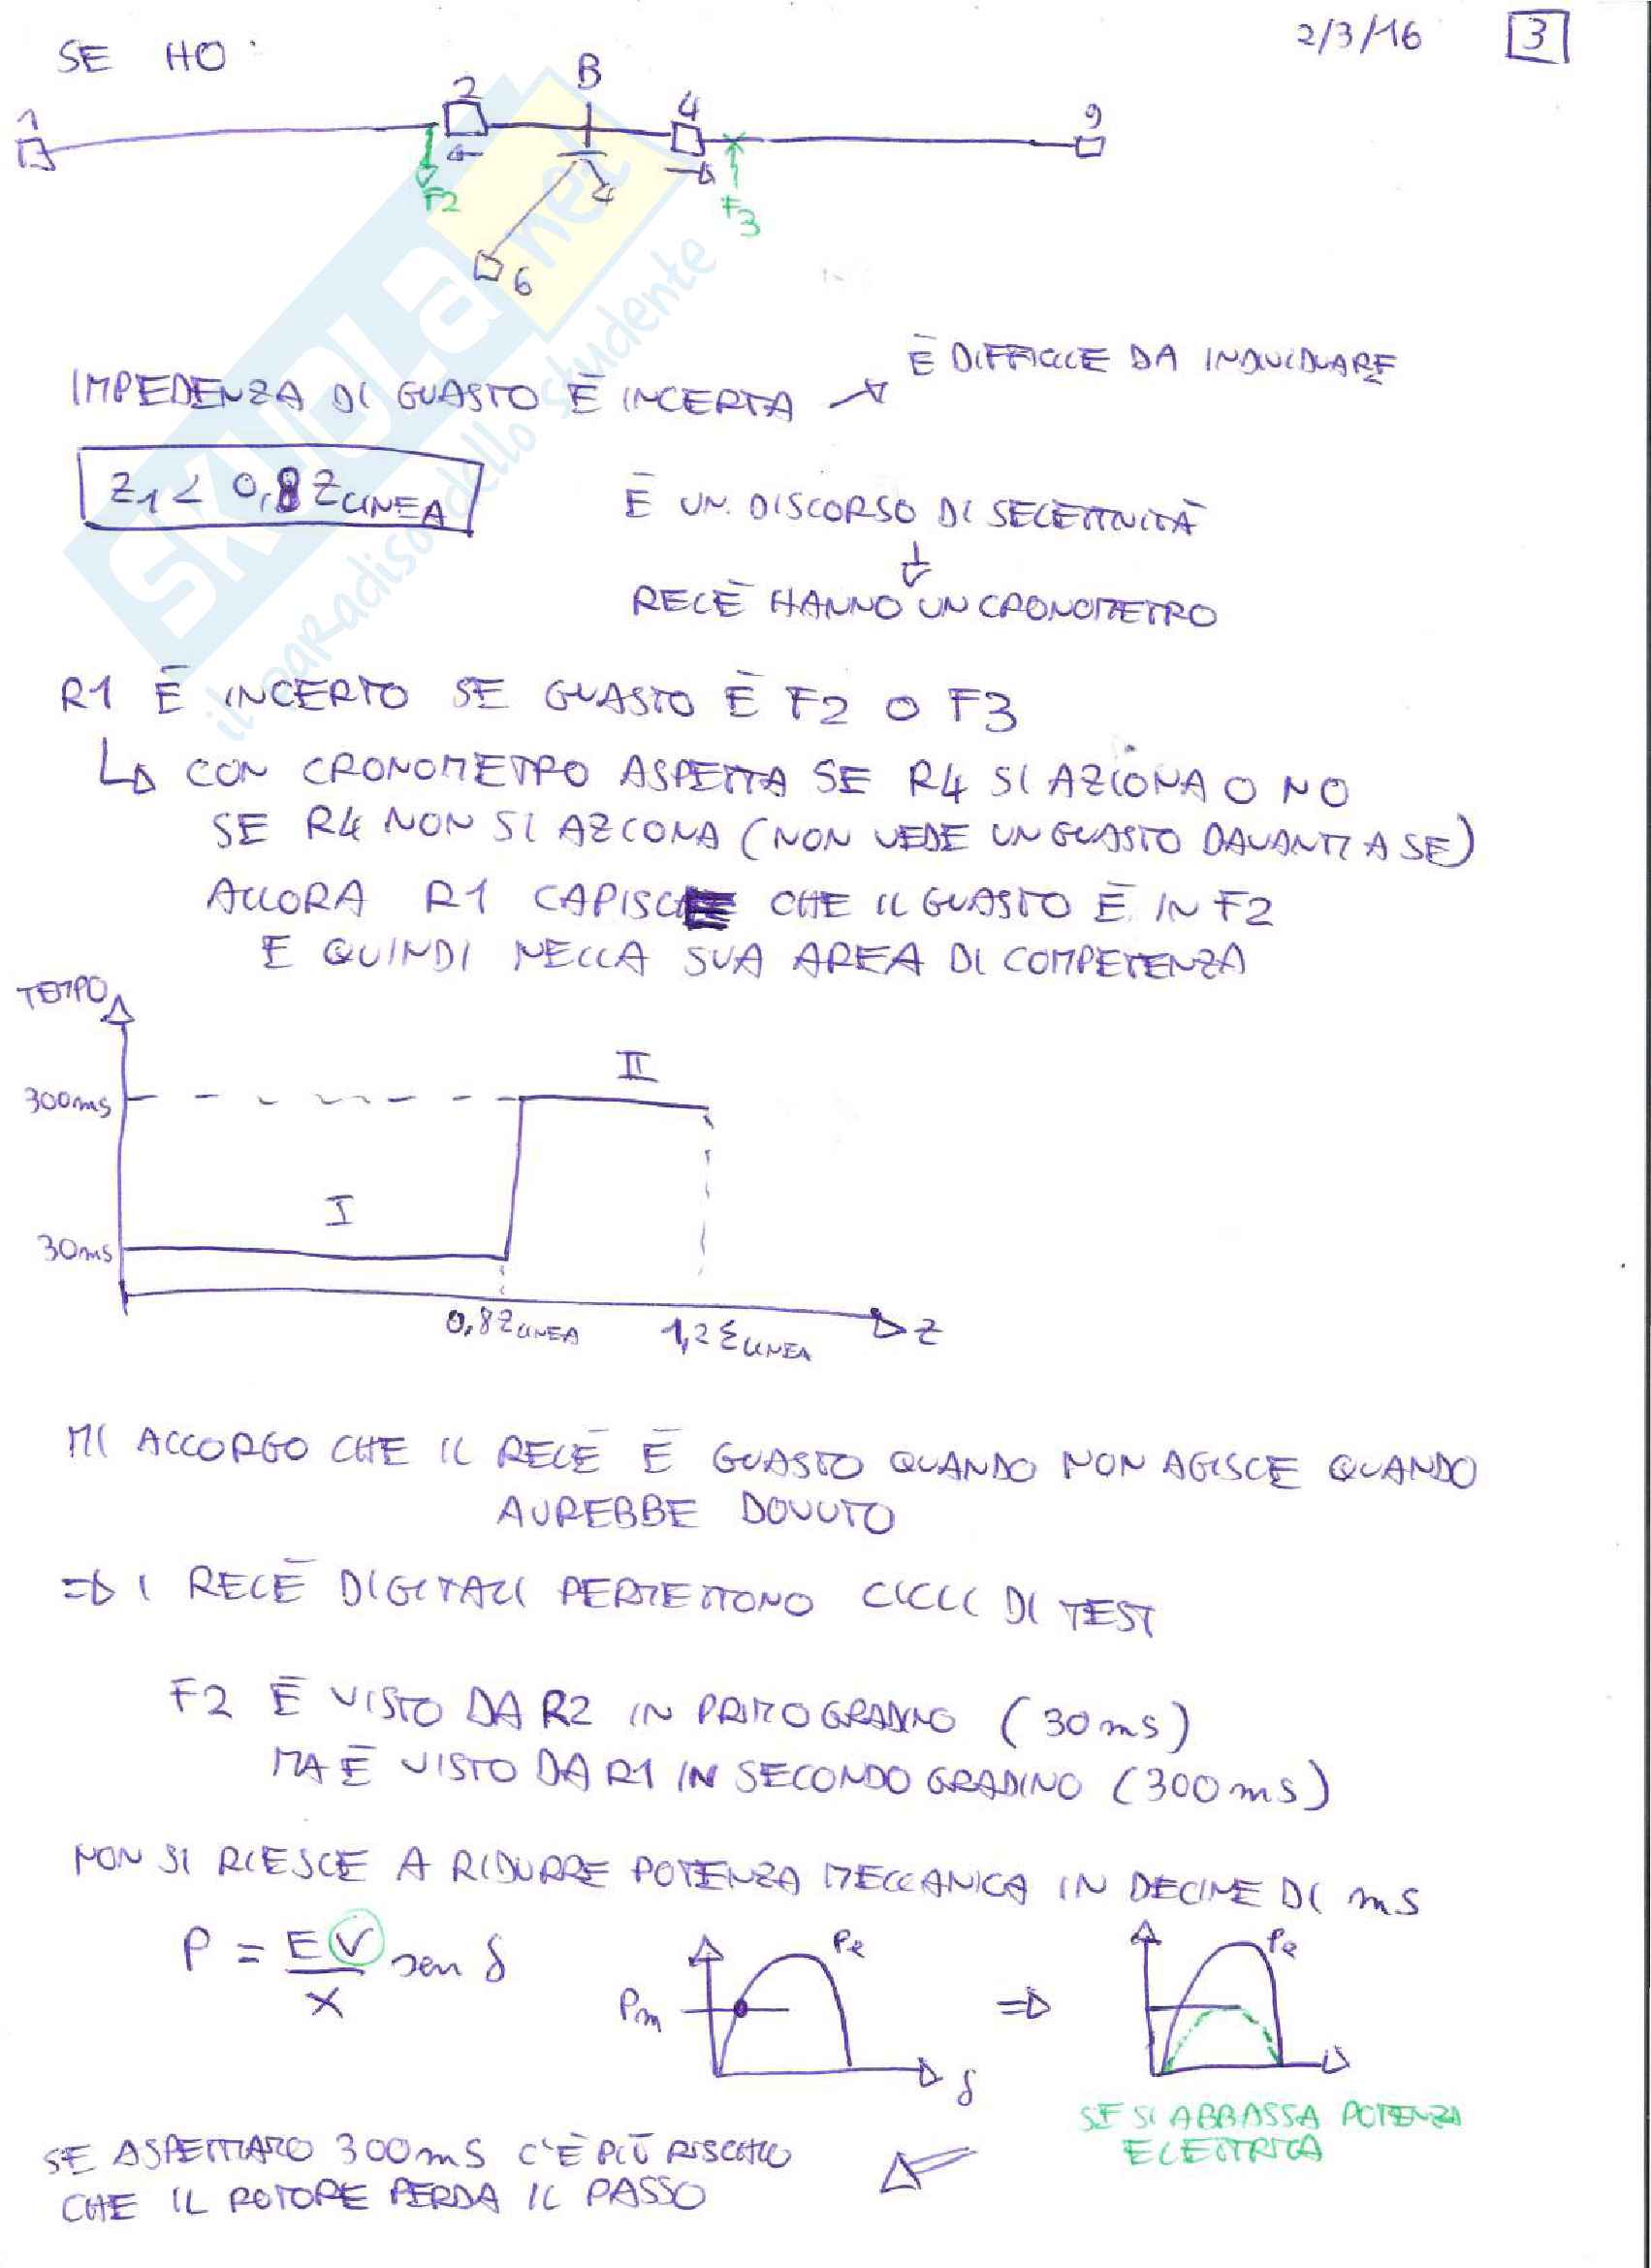 2/3/16 3
SE HO:
1 2 B 4 9
F2 F3
6
È DIFFICILE DA INDIVIDUARE
IMPEDENZA DI GUASTO È INCERTA
Z1 < 0,8 ZLINEA
È UN DISCORSO DI SELETTIVITÀ
RELÈ HANNO UN CRONOMETRO
R1 È INCERTO SE GUASTO È F2 O F3
CON CRONOMETRO ASPETTA SE R4 SI AZIONA O NO
SE R4 NON SI AZIONA (NON VEDE UN GUASTO DAVANTI A SE)
ALLORA R1 CAPISCE CHE IL GUASTO È IN F2
E QUINDI NELLA SUA AREA DI COMPETENZA
TEMPO
II
300ms
I
30ms
0,8 ZLINEA 1,2 ZLINEA Z
MI ACCORGO CHE IL RELÈ È GUASTO QUANDO NON AGISCE QUANDO
AVREBBE DOVUTO
=> I RELÈ DIGITALI PERMETTONO CICLI DI TEST
F2 È VISTO DA R2 IN PRIMO GRADINO (30ms)
MA È VISTO DA R1 IN SECONDO GRADINO (300ms)
NON SI RIESCE A RIDURRE POTENZA MECCANICA IN DECINE DI ms
P = EV/X sen δ
Pe
Pm
δ
=>
Pe
SE SI ABBASSA POTENZA
ELETTRICA
SE ASPETTIAMO 300ms C'È PIÙ RISCHIO
CHE IL ROTORE PERDA IL PASSO
SKUOLA.net
il paradiso dello studente